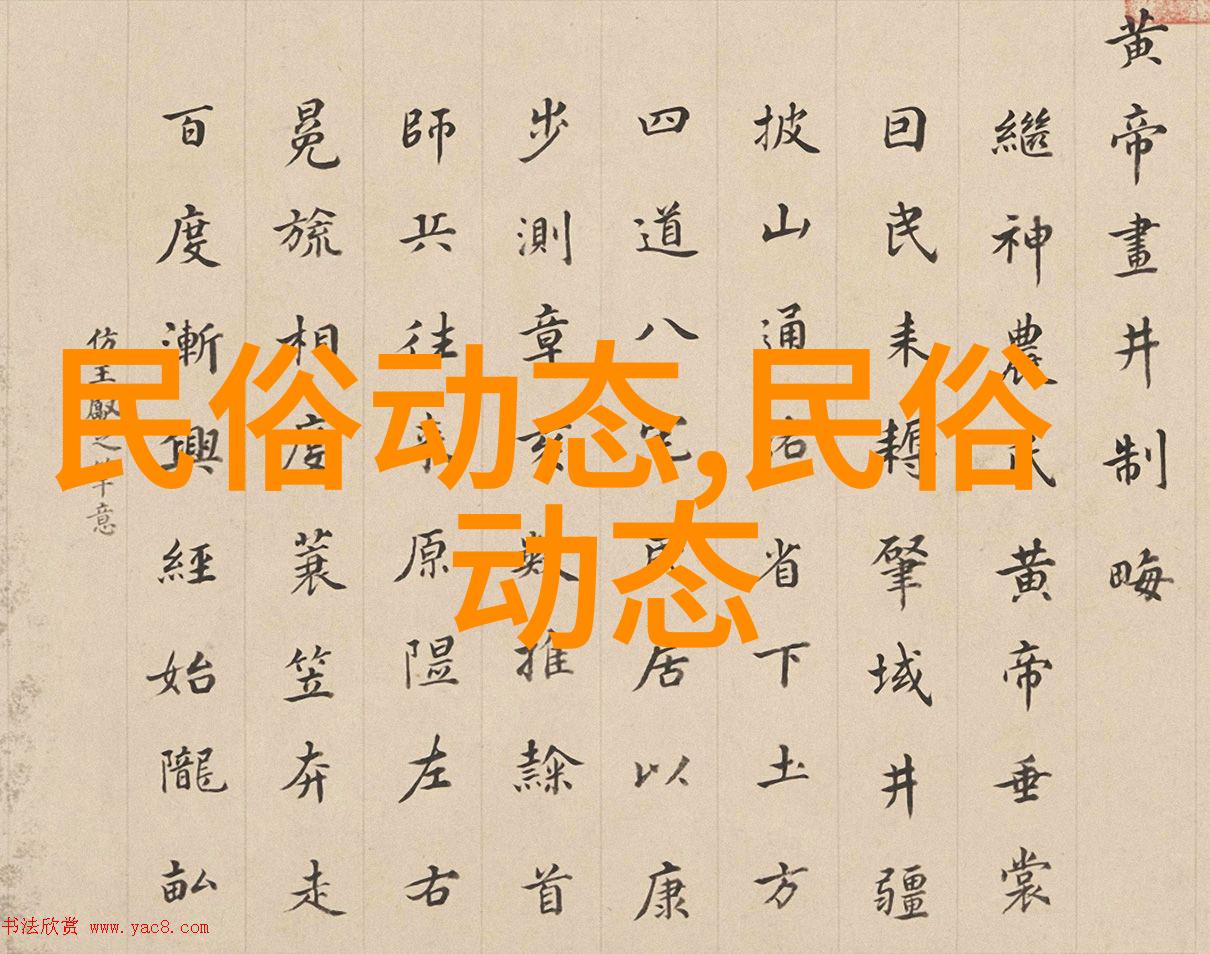 黄帝畫井制畮
繼神農氏黄帝垂裳
囙民耒耨肇域井疆
披山通省下土方
四道八宅居以康
步測章亥數推隸首
師兵往來原隰左右
冕旒相度蓑笠奔走
百度漸興經始隴畝
仿王獻之意
民俗动态,民俗
动态
书法欣赏 www.yac8.com